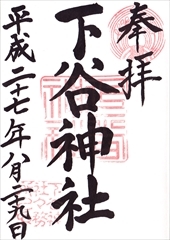 奉拝
下谷神社
平成二十七年八月二十九日